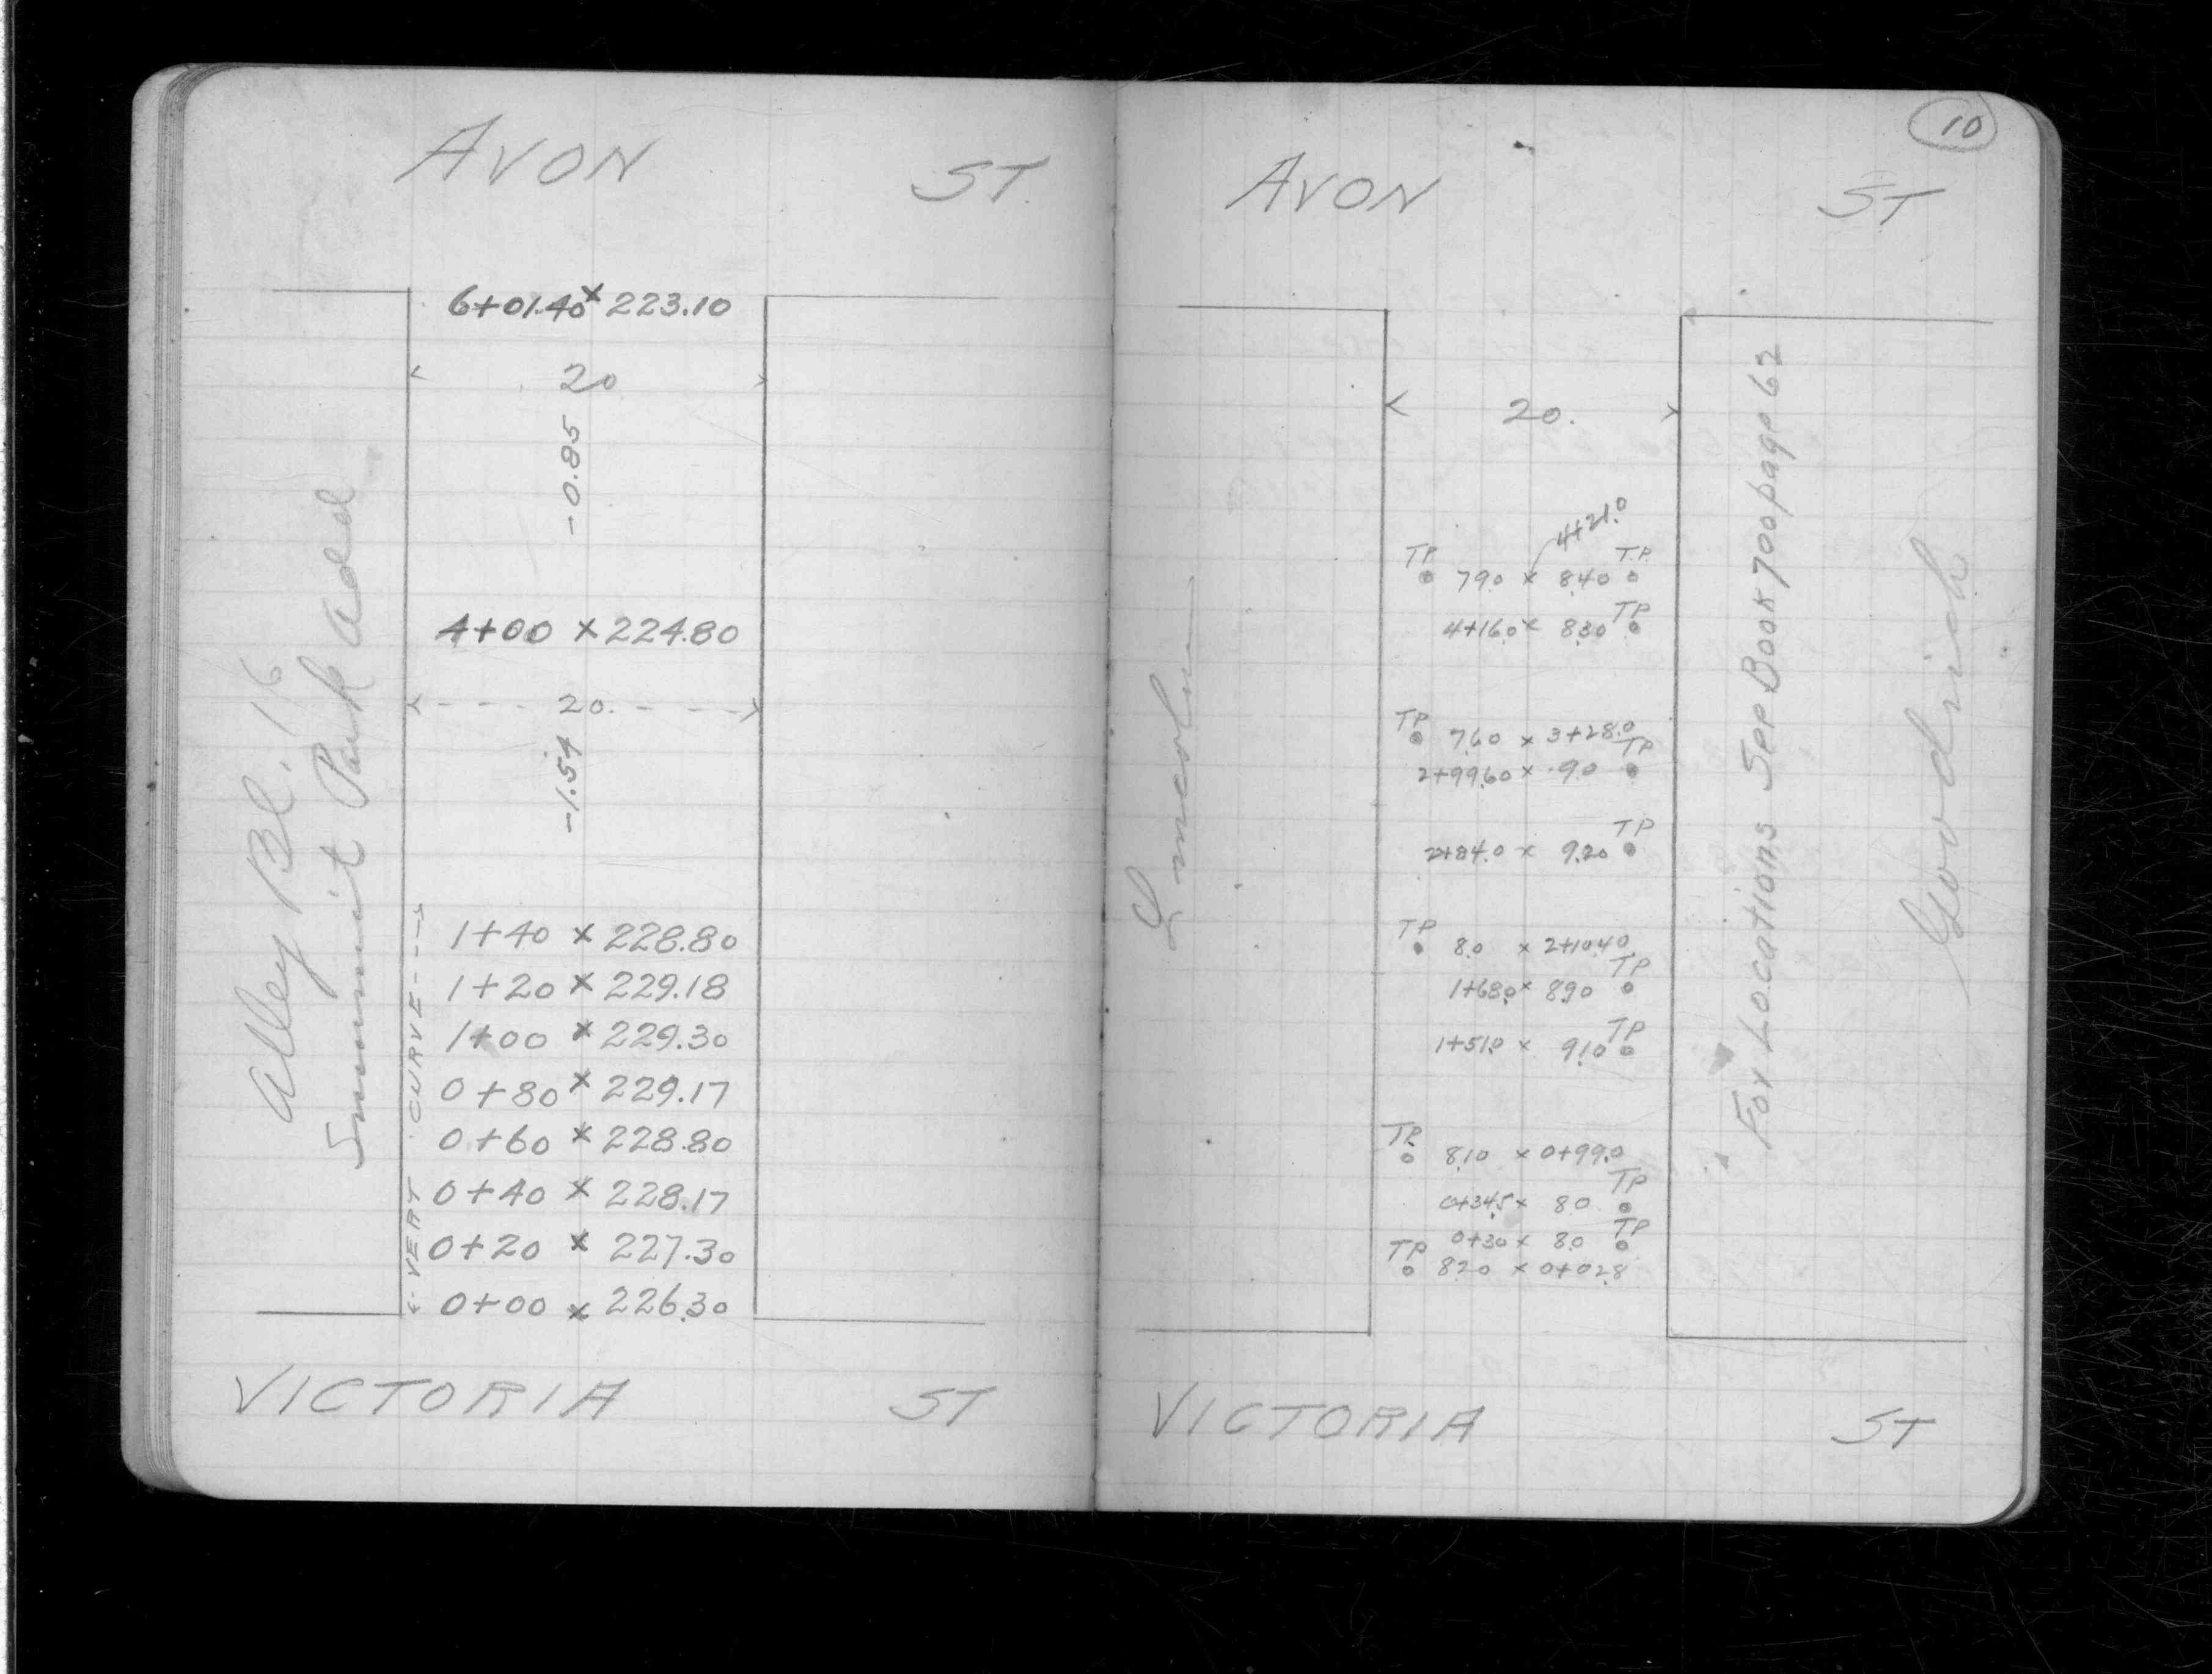 AVON ST.
6+01.40 x 223.10
20
-0.85
4+00 x 224.80
20.
-1.54
1+40 x 228.80
1+20 x 229.18
1+00 x 229.30
0+80 x 229.17
0+60 x 228.80
0+40 x 228.17
0+20 x 227.30
0+00 x 226.30
<- VERT. CURVE --->
Alley Bl. 16
Summit Park Add
VICTORIA ST
10
AVON ST
20.
4+21.0
TP 7.90 x 8.40 T.P.
4+16.0 x 8.30 TP
TP 7.60 x 3+28.0
2+99.60 x 9.0 TP
2+84.0 x 9.20 TP
TP 8.0 x 2+10.40
1+68.0 x 8.90 TP
1+51.0 x 9.10 TP
TP. 8.10 x 0+99.0
0+34.5 x 8.0 TP
0+30 x 8.0 TP
TP 8.20 x 0+02.8
Lincoln
For Locations See Book 700 page 62
Goodrich
VICTORIA ST